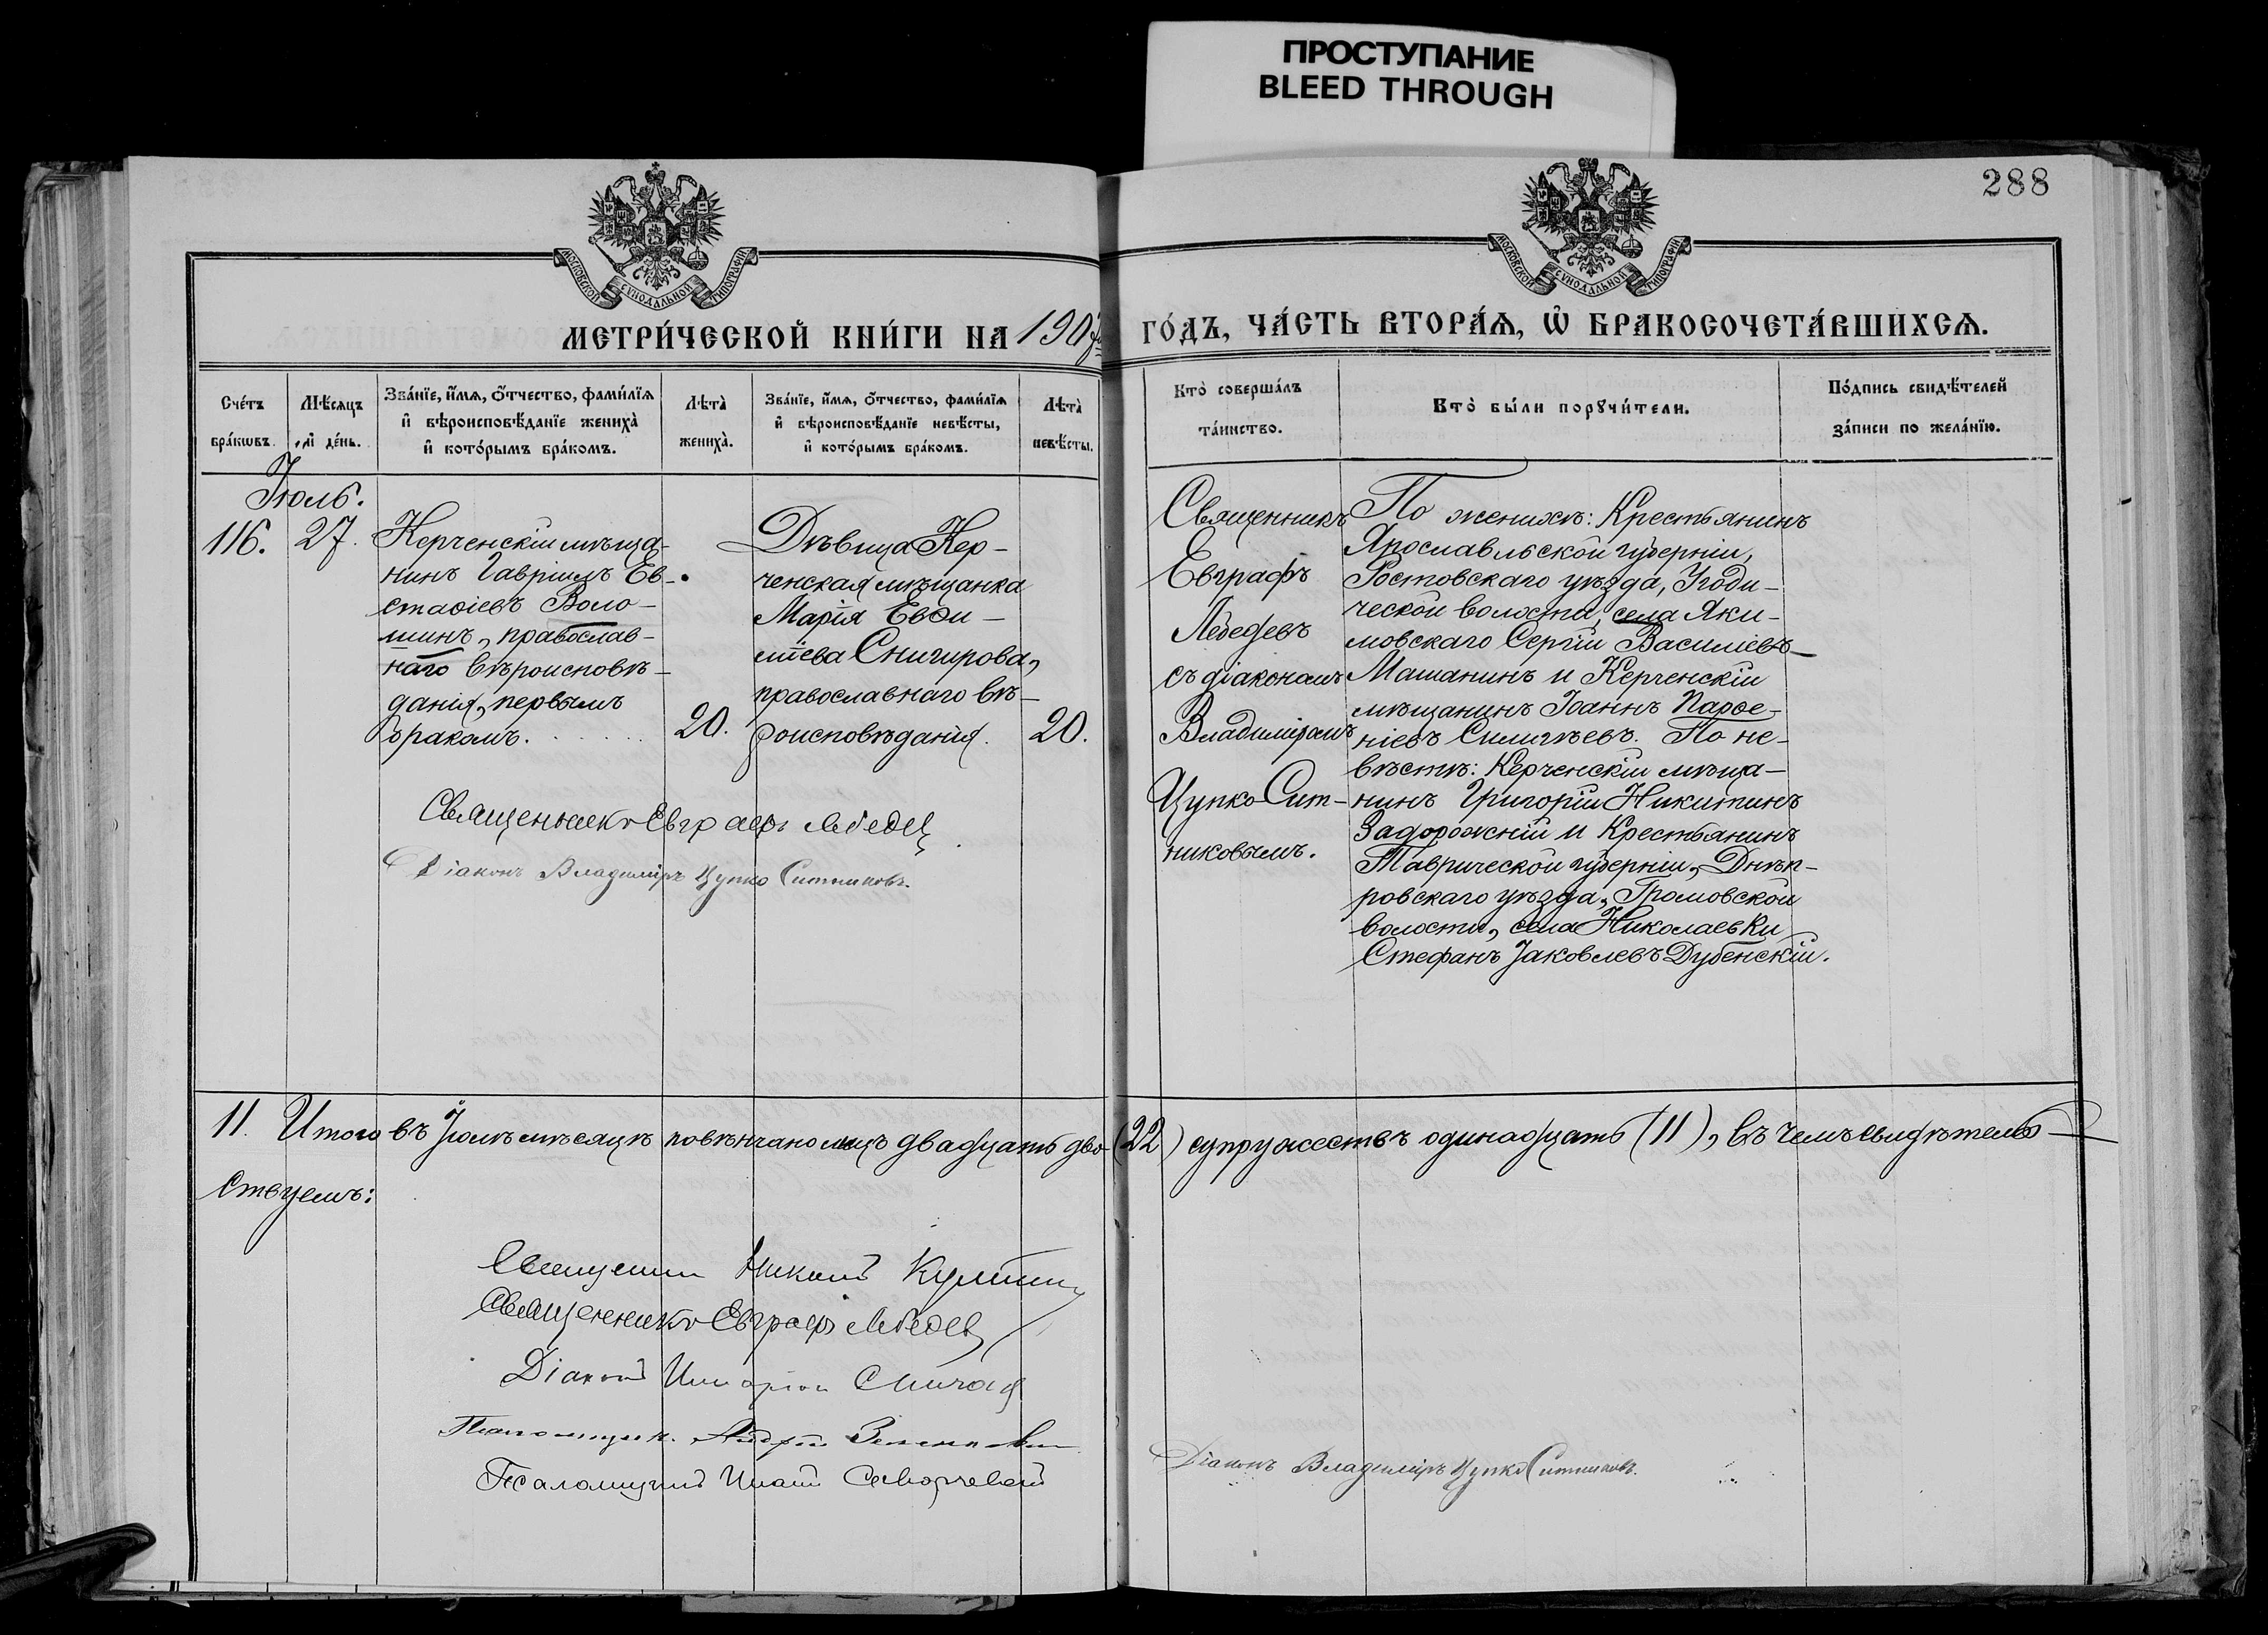 ПРОСТУПАНИЕ
BLEED THROUGH
288
МОСКОВСКОЙ СУНОДАЛЬНОЙ ТИПОГРАФІИ
МОСКОВСКОЙ СУНОДАЛЬНОЙ ТИПОГРАФІИ
МЕТРИ́ЧЕСКОЙ КНИ́ГИ НА 1907
ГО́ДЪ, ЧА́СТЬ ВТОРА́Ѧ, Ѡ БРАКОСОЧЕТА́ВШИХСѦ.
Сче́тъ
бра́кѡвъ.
Мѣ́сяцъ
и де́нь.
Зва́нїе, и́мѧ, о́тчество, фами́лїѧ
и вѣроисповѣ́данїе жениха̀
и кото́рымъ бра́комъ.
Лѣта̀
жениха̀.
Зва́нїе, и́мѧ, о́тчество, фами́лїѧ
и вѣроисповѣ́данїе невѣ́сты,
и кото́рымъ бра́комъ.
Лѣта̀
невѣ́сты.
Кто̀ соверша́лъ
та́инство.
Кто̀ бы́ли порꙋчи́тели.
По́дпись свидѣ́телей
за́писи по жела́нїю.
Іюль.
116.
27.
Керченскій мѣща-
нинъ Гавріилъ Ев-
стаѳіевъ Воло-
шинъ, православ-
наго вѣроисповѣ-
данія, первымъ
бракомъ.
20.
Дѣвица Кер-
ченская мѣщанка
Марія Евѳи-
міева Снигирова,
православнаго вѣ-
роисповѣданія.
20.
Священникъ
Евграфъ
Лебедевъ
съ діакономъ
Владиміромъ
Цупко-Сит-
никовымъ.
По женихѣ: Крестьянинъ
Ярославльской губерніи,
Ростовскаго уѣзда, Угоди-
ческой волости, села Яки-
мовскаго Сергій Василіевъ
Машанинъ и Керченскій
мѣщанинъ Іоаннъ Парѳе-
ніевъ Силигѣевъ. По не-
вѣстѣ: Керченскій мѣща-
нинъ Григорій Никитинъ
Задорожній и Крестьянинъ
Таврической губерніи, Днѣп-
ровскаго уѣзда, Громовской
волости, села Николаевки
Стефанъ Іаковлевъ Дубенскій.
Священникъ Евграфъ Лебедев
Діаконъ Владиміръ Цупко Ситниковъ.
11. Итого въ Іюлѣ мѣсяцѣ повѣнчано лицъ двадцать два (22) супружествъ одинадцать (11), въ чемъ свидѣтель-
ствуемъ:
Священникъ Николай
Священникъ Евграфъ Лебедев
Діаконъ
Псаломщик. Андрей
Псаломщикъ
Діаконъ Владиміръ Цупко Ситниковъ.